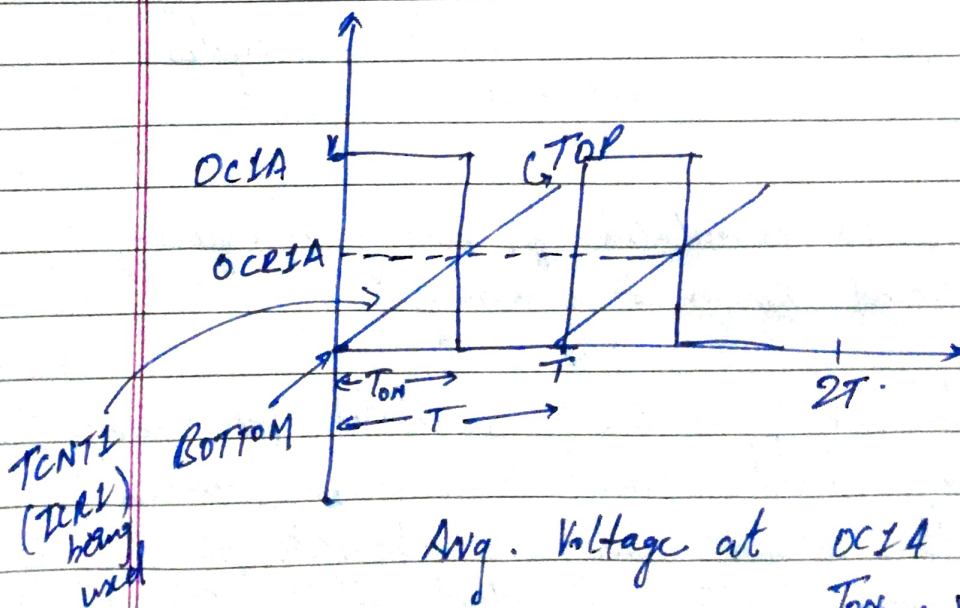 OC1A
TOP
OCR1A
TON
T
T
2T.
BOTTOM
TCNT1
(ICR1)
being
used
Avg. Voltage at OC1A
TON